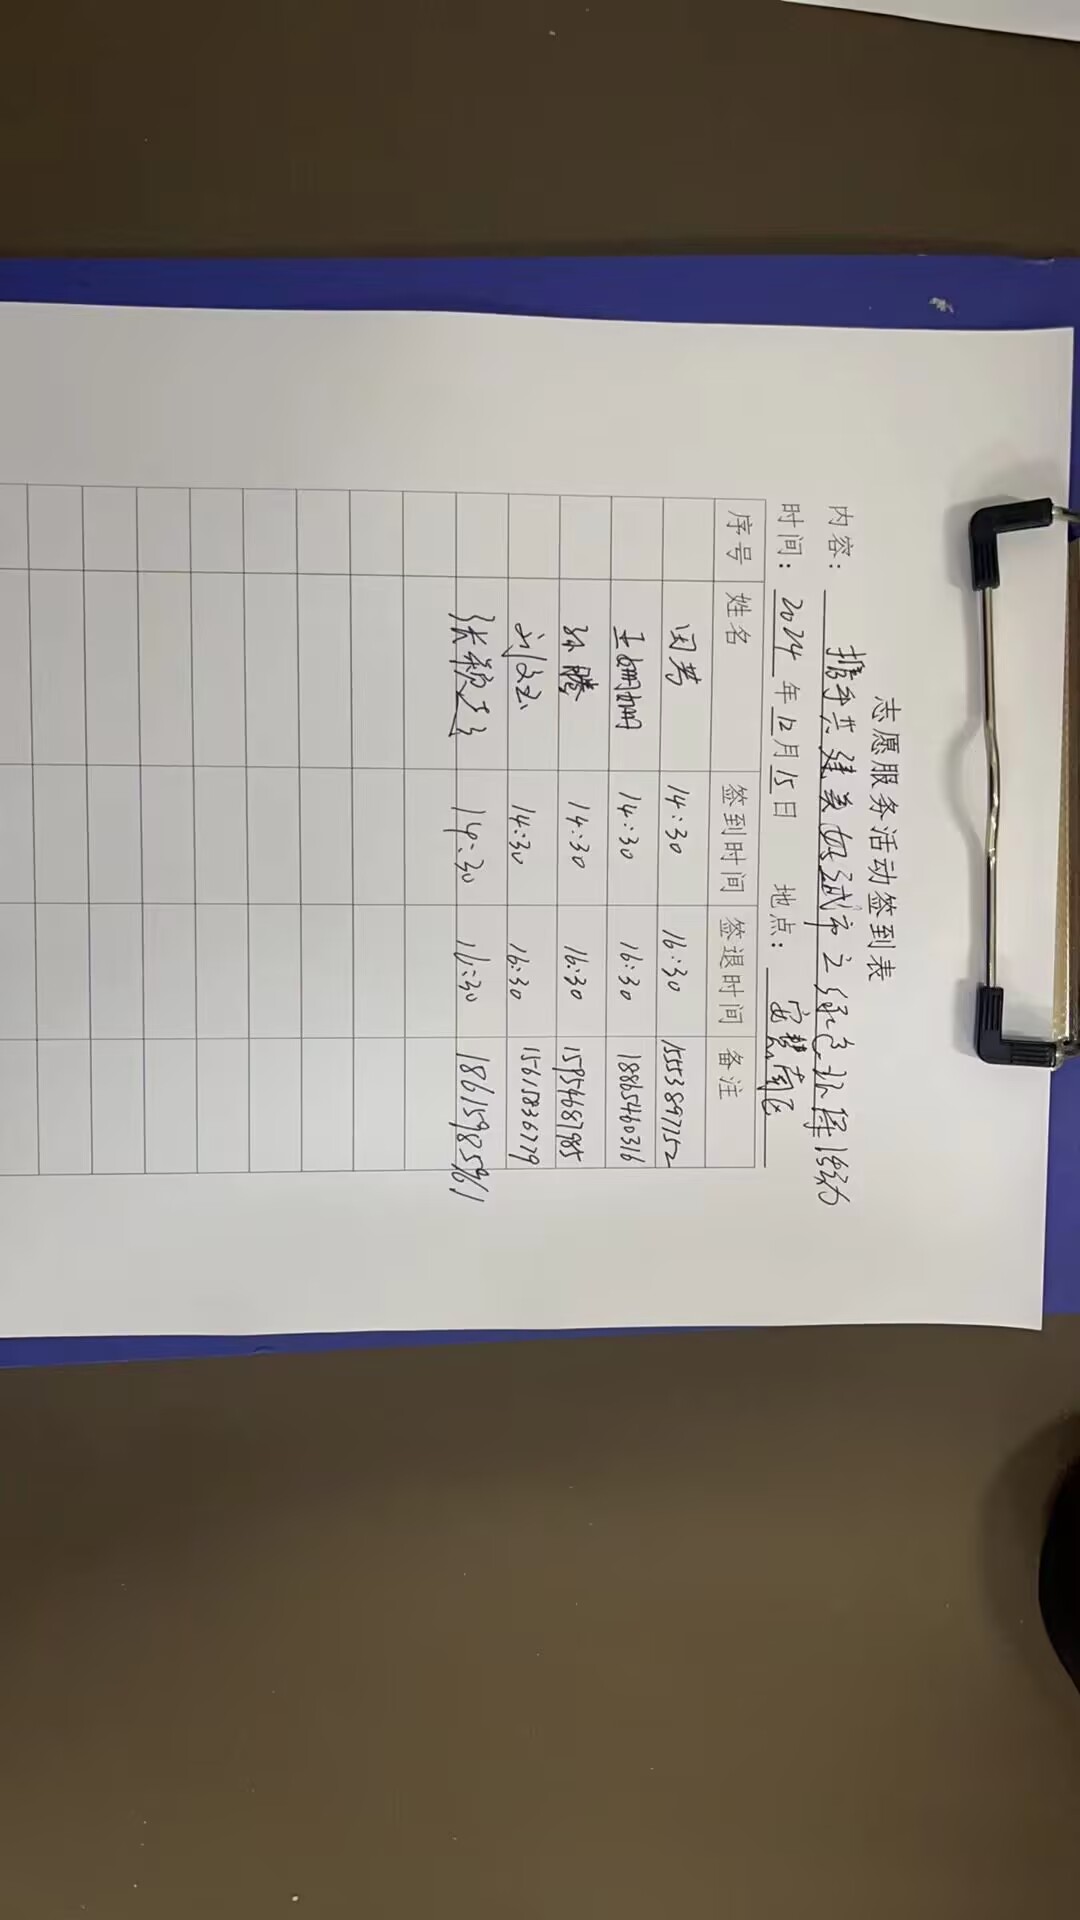 志愿服务活动签到表
内容：携手共建美好城市之绿色环保活动
时间：2024年12月15日 地点：安慧南区
序号 姓名 签到时间 签退时间 备注
闵芳 14:30 16:30 15553897752
王姗姗 14:30 16:30 18865460316
孙腾 14:30 16:30 15954687985
刘文 14:30 16:30 15615836779
张颖 14:30 16:30 18615985961